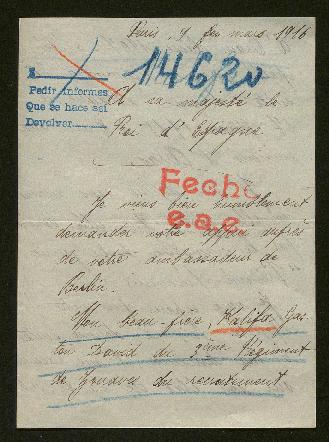 Paris, 9 mars 1916
14620
Pedir informes
Que se hace asi
Devolver
A sa majesté le
Roi d'Espagne
Fecho
e.a.e.
Je viens bien humblement
demander votre appui auprès
de votre ambassadeur de
Berlin.
Mon beau-frère, Kalifa Gas
ton David du 9ème Régiment
de Zouaves du recrutement